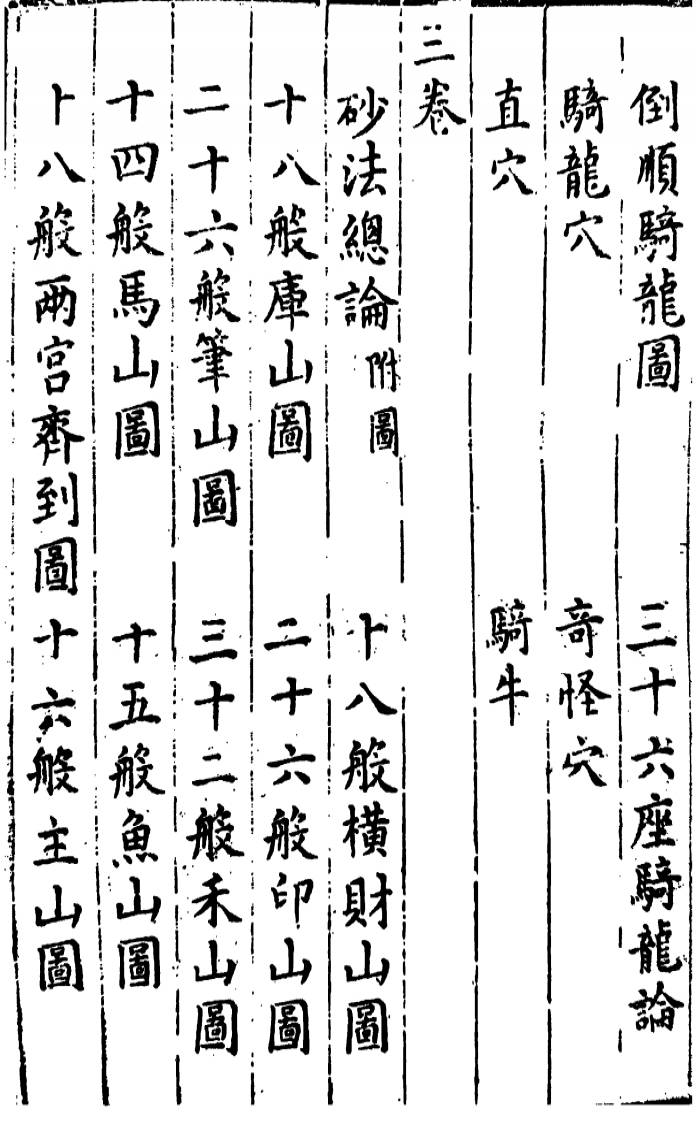 倒順騎龍圖　三十六座騎龍論
騎龍穴　竒怪穴
直穴　騎牛
三卷
砂法總論 附圖　十八般橫財山圖
十八般庫山圖　二十六般印山圖
二十六般筆山圖　三十二般禾山圖
十四般馬山圖　十五般魚山圖
十八般兩宮齊到圖　十六般主山圖